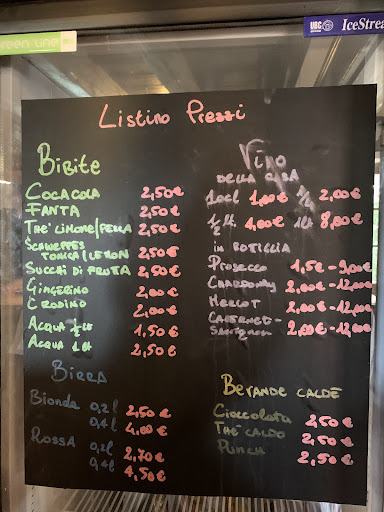 green line
UBC
IceStrea
Listino Prezzi
Bibite
Coca Cola 2,50€
Fanta 2,50€
Thè Limone/Pesca 2,50€
Schweppes
Tonica/Lemon 2,50€
Succhi di Fruta 2,50€
Gingerino 2,00€
Crodino 2,00€
Acqua ½ lt 1,50€
Acqua 1 lt 2,50€
Birra
Bionda 0,2 l 2,50€
0,4 l 4,00€
Rossa 0,2 l 2,70€
0,4 l 4,50€
Vino
della casa
10cl 1,00€ ¼ 2,00€
½ lt 4,00€ 1 lt 8,00€
in bottiglia
Prosecco 1,5€ - 9,00€
Chardonnay 2,00€ - 12,00€
Merlot 2,00€ - 12,00€
Cabernet-
Sauvignon 2,00€ - 12,00€
Bevande calde
Cioccolata 2,50€
Thè caldo 2,50€
Punch 2,50€